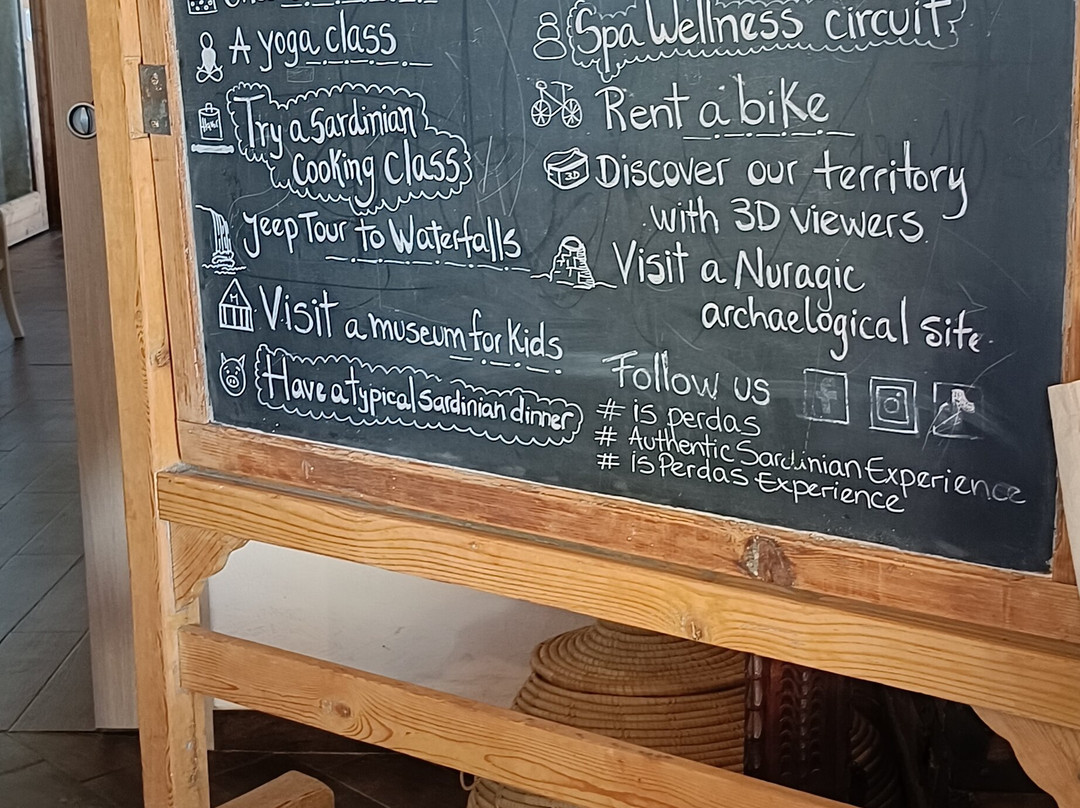 A yoga class
Try a Sardinian
Cooking Class
Jeep Tour to Waterfalls
Visit a museum for Kids
Have a typical Sardinian dinner
Spa Wellness circuit
Rent a bike
3D
Discover our territory
with 3D viewers
Visit a Nuragic
archaelogical site.
Follow us
# is perdas
# Authentic Sardinian Experience
# is Perdas Experience